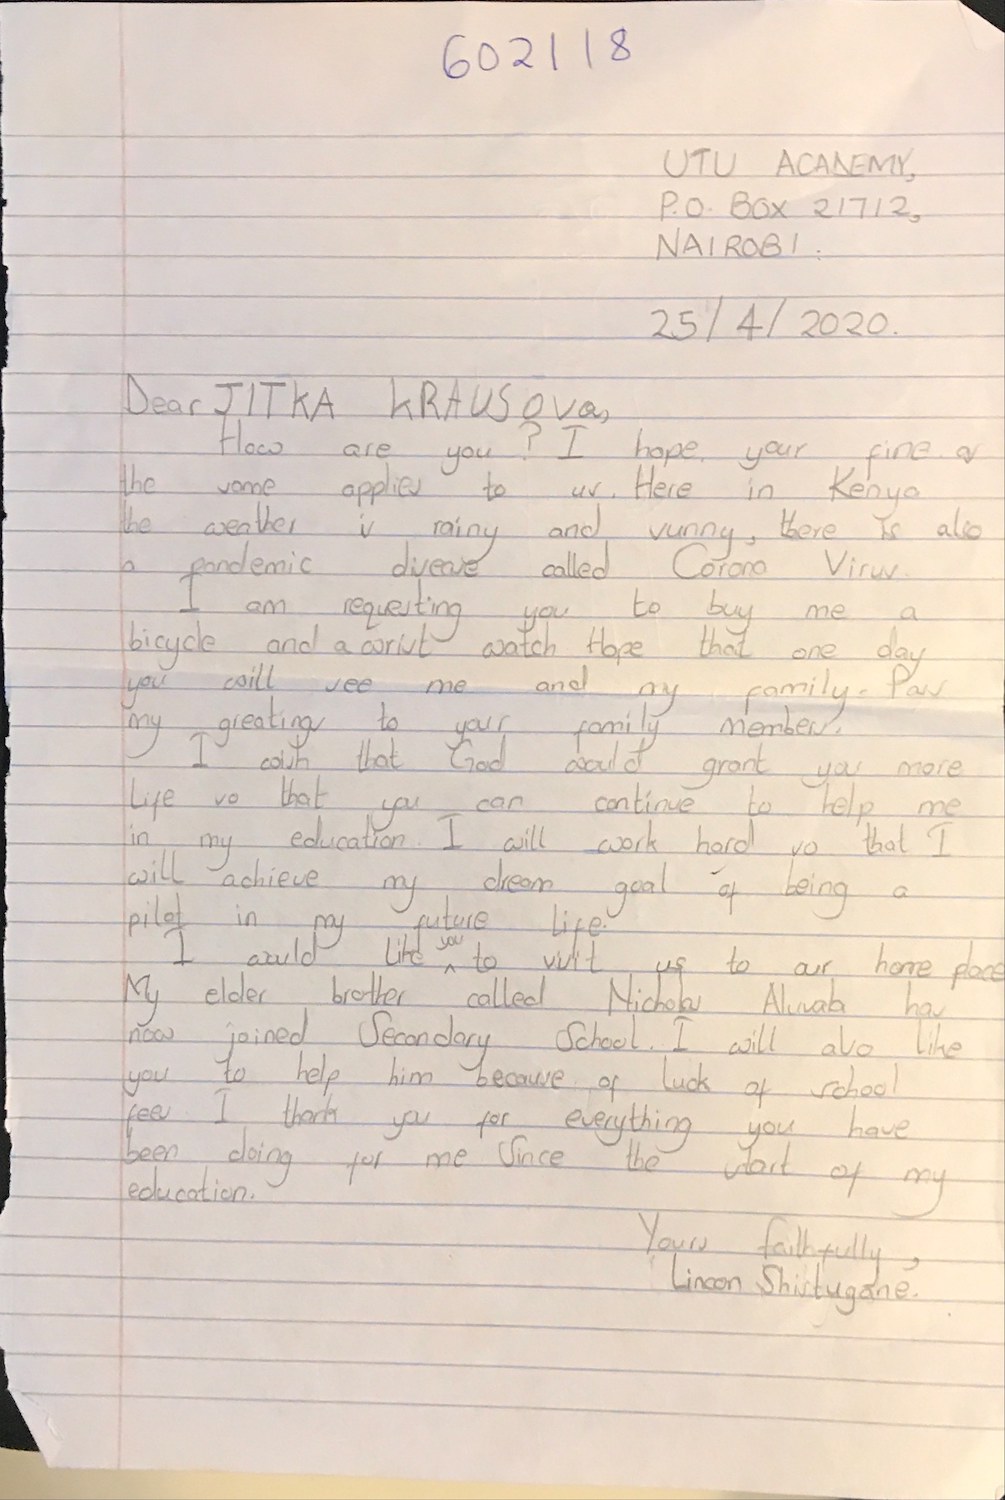 602118
UTU ACADEMY,
P.O. BOX 21712,
NAIROBI.
25/4/2020.
Dear JITKA KRAUSOva,
How are you? I hope your fine as
the same applies to us. Here in Kenya
the weather is rainy and sunny, there is also
a pandemic disease called Corona Virus.
I am requesting you to buy me a
bicycle and a wrist watch Hope that one day
you will see me and my family. Pass
my greating to your family members.
I wish that God would grant you more
Life so that you can continue to help me
in my education. I will work hard so that I
will achieve my dream goal of being a
pilot in my future life.
I would like you to visit us to our home place
My elder brother called Nicholas has
now joined Secondary School. I will also like
you to help him because of luck of school
fees I thank you for everything you have
been doing for me Since the start of my
education.
Yours faithfully,
Lincon Shistugane.